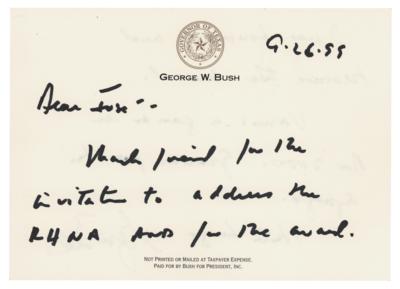 GOVERNOR OF TEXAS
9.26.99
GEORGE W. BUSH
Dear Jose --
Thank friend for the
invitation to address the
RHNA and for the award.
NOT PRINTED OR MAILED AT TAXPAYER EXPENSE.
PAID FOR BY BUSH FOR PRESIDENT, INC.